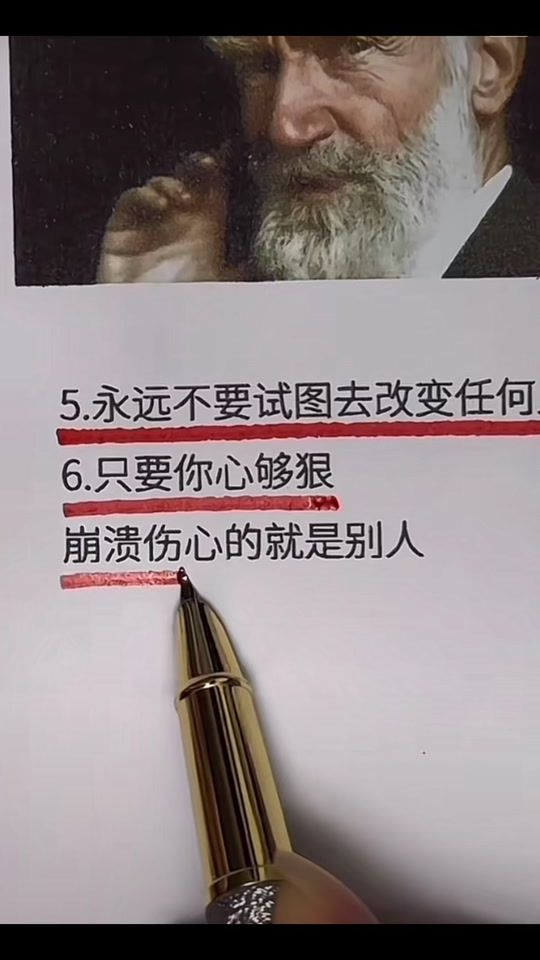 5.永远不要试图去改变任何
6.只要你心够狠
崩溃伤心的就是别人